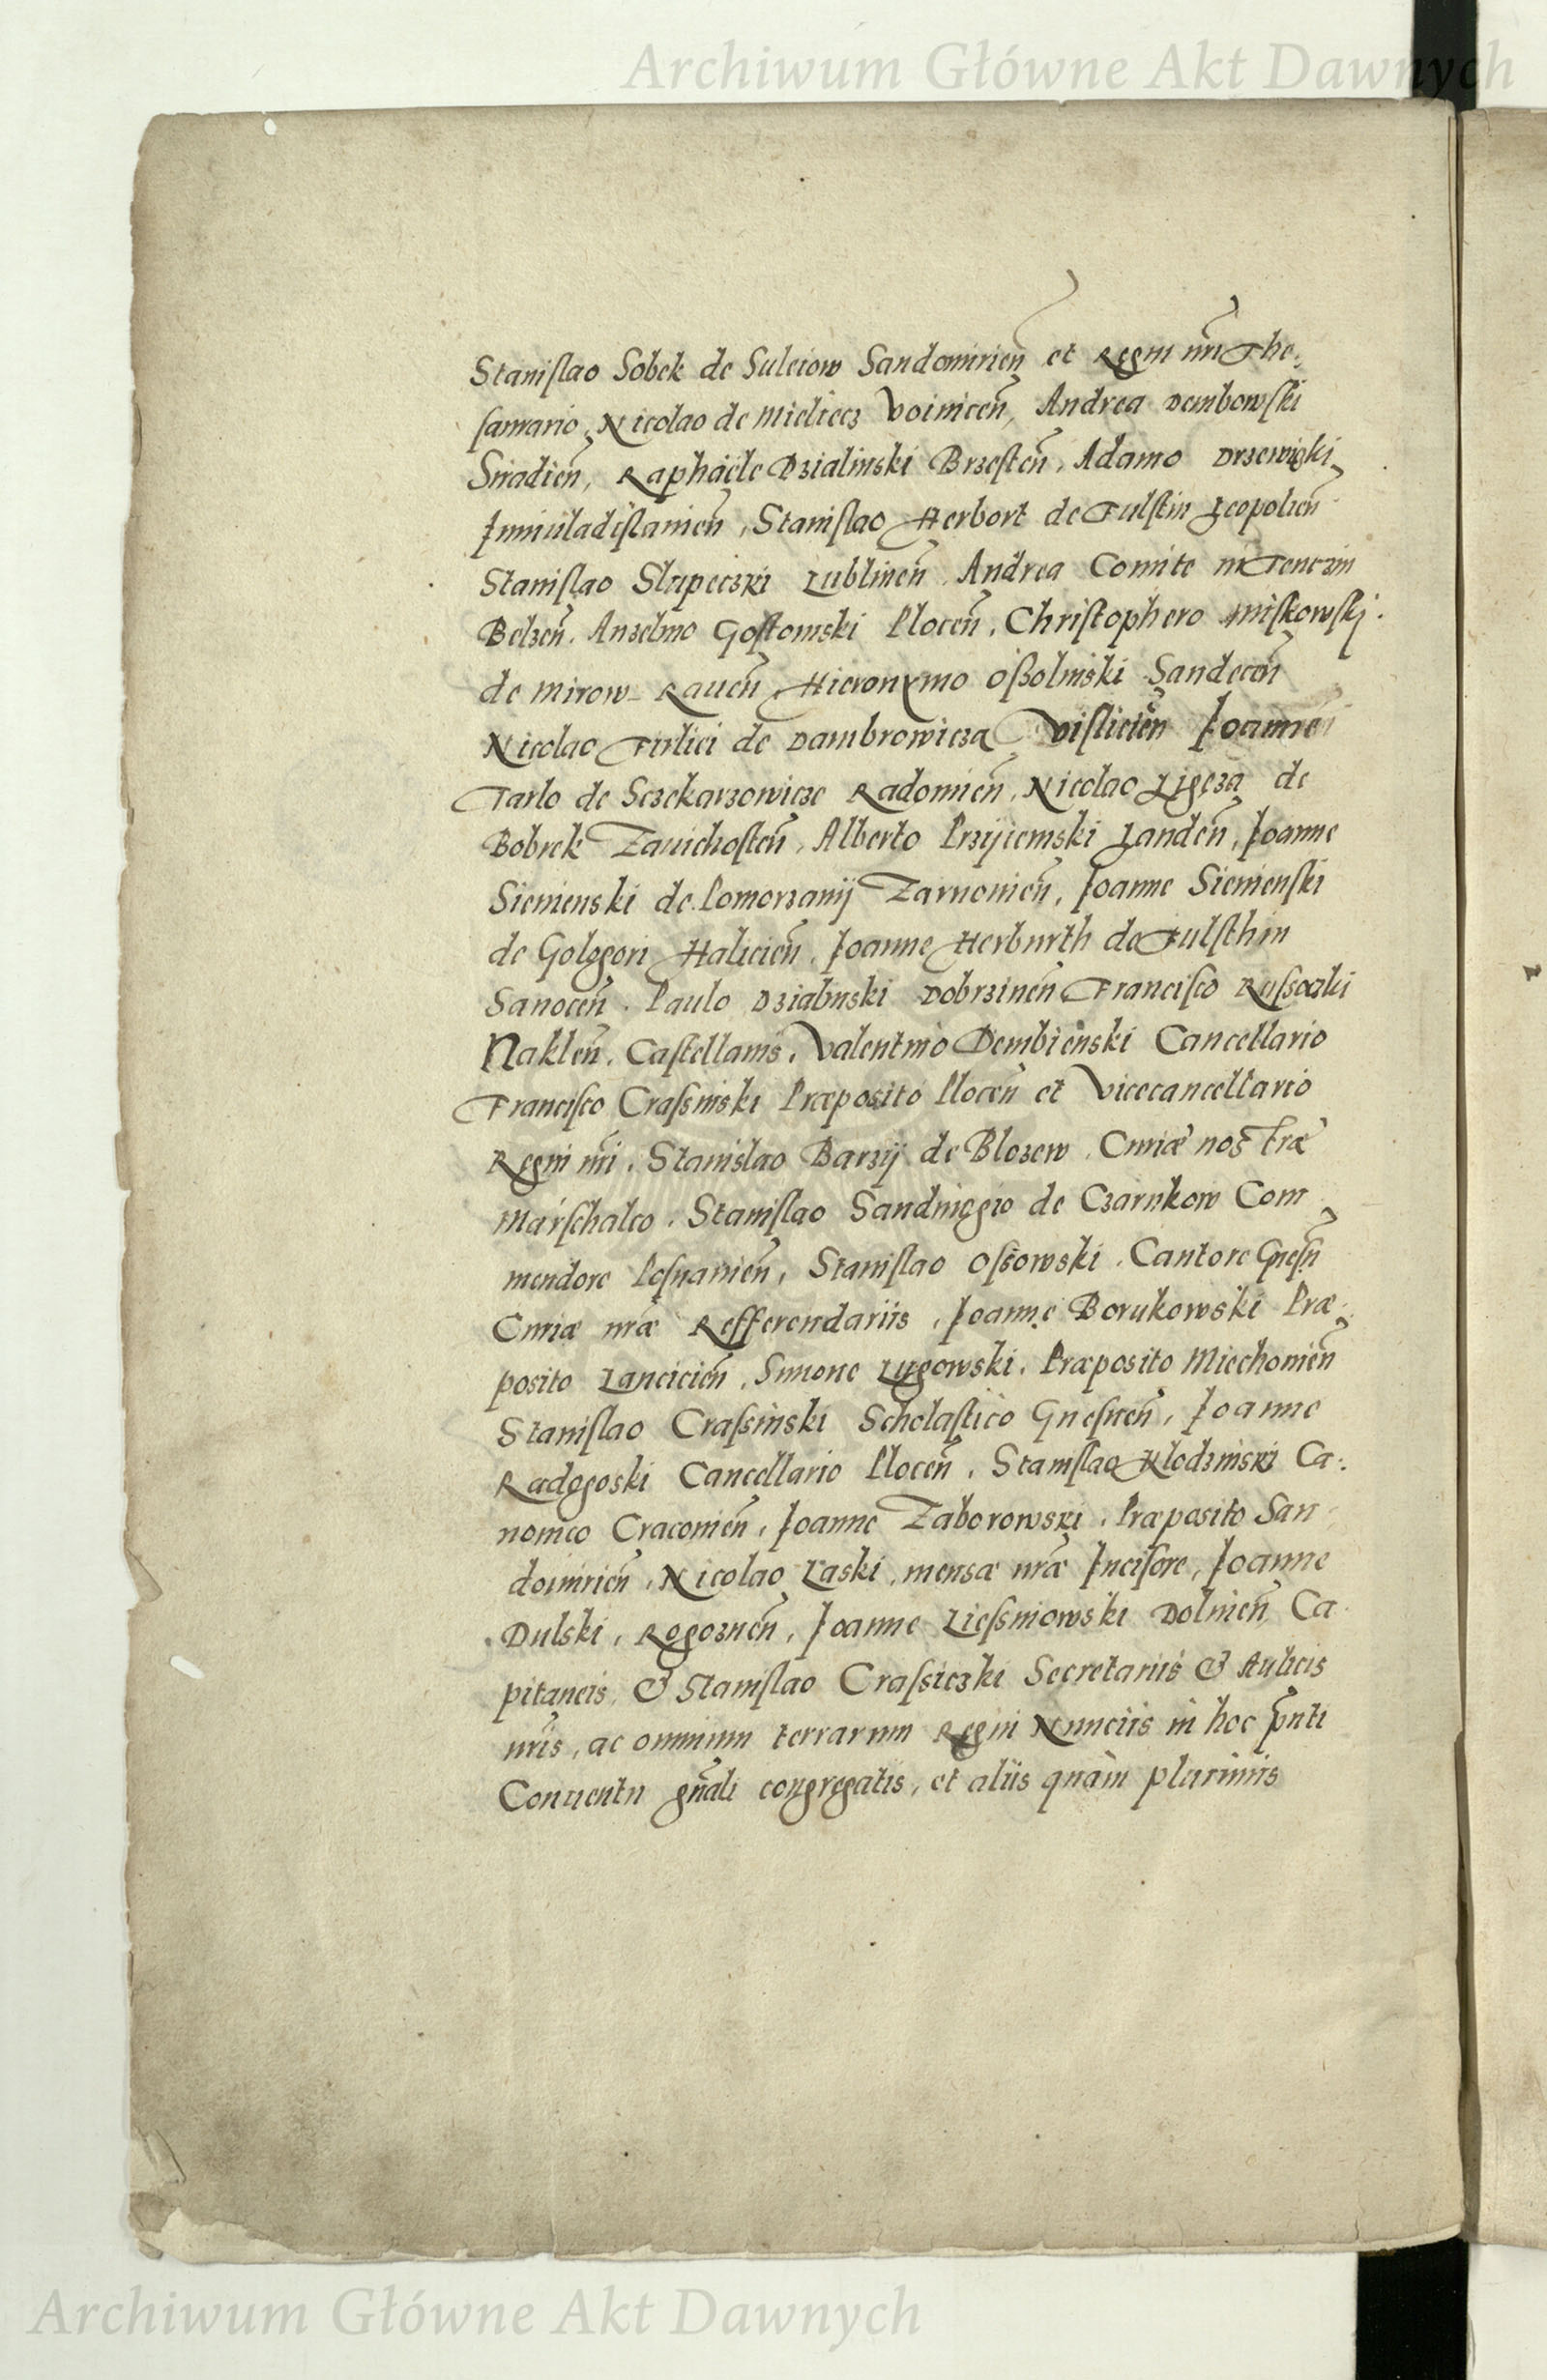 Archiwum Główne Akt Dawnych
Stanislao Sobek de Suleiow Sandomirien̄ et Regni nr̄i The:
saurario, Nicolao de Mieliecz Voinicen̄, Andrea Dembowski
Siradien̄, Raphaële Dzialinski Brzesten̄, Adamo Drzewiczki
Juniuladislauien̄, Stanislao Herbort de Fulstin Leopolien̄
Stanislao Slupeczki Lublinen̄. Andrea Comite in Tenczin
Belzen̄. Anzelmo Gostomski Plocen̄, Christophero Miskowskj.
de Mirow Rauen̄, Hieronymo Oßolinski Sandecen̄
Nicolao Firlici de Dambrowicza Visliciēn Joanne
Tarlo de Sczekarzowicze Radomien̄, Nicolao Ligęza de
Bobrek Zauichosten̄, Alberto Przyiemski Landen̄, Joanne
Sienienski de Pomorzanij Zarnouien̄, Joanne Sienienski
de Gologori Halicien̄, Joanne Herburth de Fulsthin
Sanocen̄. Paulo Dzialinski Dobrzinen̄ Francisco Russoczki
Naklen̄. Castellanis, Valentino Dembienski Cancellario
Francisco Crassinski Præposito Plocen̄ et Vicecancellario
Regni nr̄i. Stanislao Barzij de Blozew. Curiæ nostræ
Marschalco. Stanislao Sandiuogio de Czarnkow Com
mendore Posnanien̄, Stanislao Ossowski. Cantore Gnesn̄
Curiæ nr̄æ Refferendariis, Joanne Borukowski Præ:
posito Lancicien̄, Simone Lugowski. Præposito Miechouien̄
Stanislao Crassinski Scholastico Gnesnen̄, Joanne
Radogoski Cancellario Plocen̄. Stanislao Klodzinski Ca:
nonico Cracouien̄, Joanne Zaborowski. Præposito San
domirien̄, Nicolao Laski, mensæ nr̄æ Incisore, Joanne
Dulski, Rogoznen̄, Joanne Liessniowski Dolinen̄ Ca
pitaneis, & Stanislao Crassiczki Secretariis & Aulicis
nr̄is, ac omnium terrarum Regni Nunciis in hoc pn̄ti
Conuentu gn̄ali congregatis, et aliis quàm plurimis
Archiwum Główne Akt Dawnych